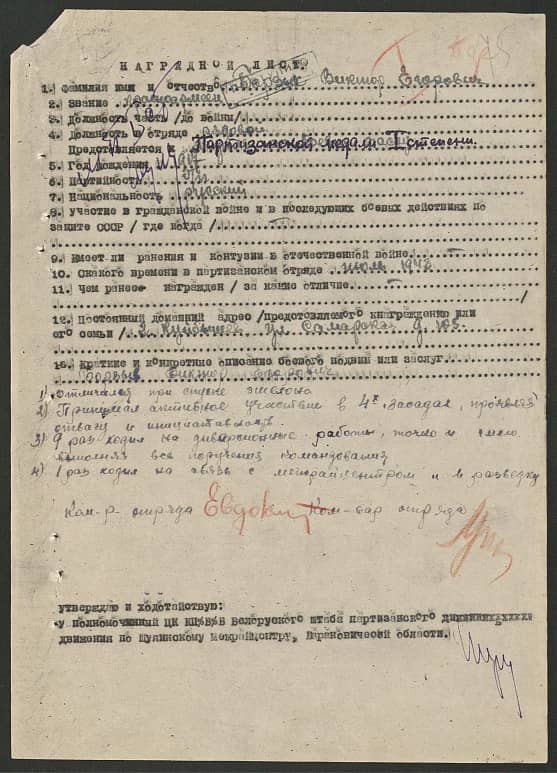 НАГРАДНОЙ ЛИСТ.
1. Фамилия имя и отчество Виктор Егорович
2. Звание красноармеец
3. Должность часть /до войны/
4. Должность в отряде рядовой
Представляется к Партизанской медали I степени.
5. Год рождения 1917
6. Партийность
7. Национальность русский
8. Участие в гражданской войне и в последующих боевых действиях по
защите СССР / где когда /
9. Имеет ли ранения и контузии в отечественной войне
10. Скакого времени в партизанском отряде июль 1942
11. Чем ранее награжден / за какие отличие
12. Постоянный домашний адрес /предотовляемого кнаграждению или
его семьи / г. Куйбышев ул. Самарская д. 103.
13. Краткие и конкретные описание боевого подвига или заслуг
Виктор Егорович
1) Отличался при спуске эшелона
2) Принимал активное участие в 4х засадах, проявлял
отвагу и инициативность
3) 9 раз ходил на диверсионные работы, точно и смело
выполнял все поручения командования
4) 1 раз ходил на связь с межрайцентром и в разведку
Ком-р отряда Ком-сар отряда
утверждаю и ходотайствую:
у полномоченный ЦК КП/б/Б Белоруского штаба партизанского
движения по Щучинскому межрайцентру, Барановической области.